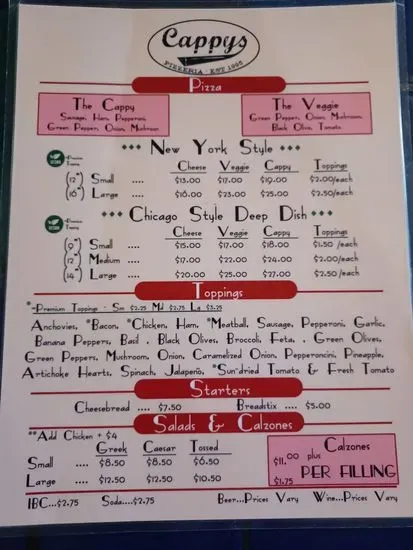 Cappys
PIZZERIA · EST 1995
Pizza
The Cappy
Sausage, Ham, Pepperoni,
Green Pepper, Onion, Mushroom
The Veggie
Green Pepper, Onion, Mushroom,
Black Olive, Tomato
New York Style
Cheese Veggie Cappy Toppings
(12") Small .... $13.00 $17.00 $19.00 $2.00/each
(16") Large .... $18.00 $23.00 $25.00 $2.50/each
Chicago Style Deep Dish
Cheese Veggie Cappy Toppings
(9") Small .... $15.00 $17.00 $18.00 $1.50 /each
(12") Medium .... $17.00 $22.00 $24.00 $2.00 /each
(14") Large .... $20.00 $25.00 $27.00 $2.50 /each
Toppings
*-Premium Toppings - Sm $2.25 Md $2.75 La $3.25
Anchovies, *Bacon, *Chicken, Ham, *Meatball, Sausage, Pepperoni, Garlic,
Banana Peppers, Basil , Black Olives, Broccoli, Feta, , Green Olives,
Green Peppers, Mushroom, Onion, Caramelized Onion, Pepperoncini, Pineapple,
Artichoke Hearts, Spinach, Jalapeño, *Sun-dried Tomato & Fresh Tomato
Starters
Cheesebread .... $7.50 Breadstix .... $5.00
Salads & Calzones
**Add Chicken + $4
Greek Caesar Tossed
Small .... $8.50 $8.50 $6.50
Large .... $12.50 $12.50 $10.50
Calzones
$11.00 plus
$1.75 PER FILLING
IBC...$2.75 Soda....$2.75 Beer...Prices Vary Wine...Prices Vary